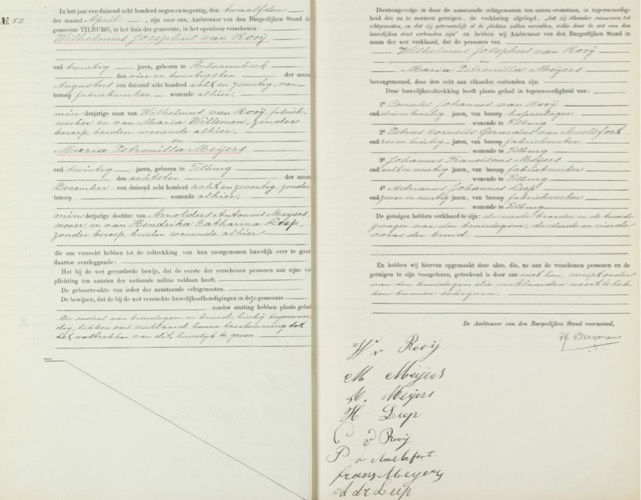 № 52.
In het jaar een duizend acht honderd negen en negentig, den twaalfden
der maand April, zijn voor ons, Ambtenaar van den Burgerlijken Stand der
gemeente TILBURG, in het huis der gemeente, in het openbaar verschenen:
Wilhelmus Josephus van Rooij
oud twintig jaren, geboren te
den een en twintigsten der maand
Augustus een duizend acht honderd acht en zeventig, van
beroep fabriekwerker wonende alhier,
minderjarige zoon van Wilhelmus van Rooij, fabriek-
werker en van Maria Willemsen, zonder
beroep, beiden wonende alhier
en
Maria Petronilla Meijers
oud twintig jaren, geboren te Tilburg
den achtsten der maand
December een duizend acht honderd acht en zeventig, zonder
beroep wonende alhier,
minderjarige dochter van Arnoldus Antonius Meijers,
wever, en van Hendrika Catharina Liep,
zonder beroep, beiden wonende alhier
die ons verzocht hebben tot de voltrekking van hun voorgenomen huwelijk over te gaan
daartoe overleggende:
Het bij de wet gevorderde bewijs, dat de eerste der verschenen personen aan zijne ver-
plichting ten aanzien der nationale militie voldaan heeft.
De geboorte-akte van ieder der aanstaande echtgenooten.
De bewijzen, dat de bij de wet vereischte huwelijksafkondigingen in deze gemeente
zonder stuiting hebben plaats gehad
De ouders van bruidegom en bruid, hierbij tegenwoor-
dig, hebben ons verklaard hunne toestemming tot
het voltrekken van dit huwelijk te geven
Dientengevolge is door de aanstaande echtgenooten ten onzen overstaan, in tegenwoordig-
heid der na te noemen getuigen, de verklaring afgelegd, dat zij elkander aannemen tot
echtgenooten, en dat zij getrouwelijk al de plichten zullen vervullen, welke door de wet aan den
huwelijken staat verbonden zijn en hebben wij hierop uitspraak gedaan in
naam der wet verklaard, dat de personen van
Wilhelmus Josephus van Rooij
en
Maria Petronilla Meijers
bovengenoemd, door den echt aan elkander verbonden zijn.
Deze huwelijksvoltrekking heeft plaats gehad in tegenwoordigheid van:
1° Cornelis Johannes van Rooij
oud jaren, van beroep
wonende te Tilburg
2° Petrus Cornelis Gerardus van Amelsfoort
oud jaren, van beroep fabriekwerker
wonende te Tilburg
3° Johannes Franciscus Meijers
oud jaren, van beroep fabriekwerker
wonende te Tilburg
4° Adrianus Johannes Liep
oud jaren, van beroep fabriekwerker
wonende te Tilburg
De getuigen hebben verklaard te zijn: de eerste broeder en de tweede
zwager van den bruidegom, de derde en vierde
ooms der bruid
En hebben wij hiervan opgemaakt deze akte, die, na aan de verschenen personen en de
getuigen te zijn voorgelezen, geteekend is door ons met hen, uitgezonderd
van den bruidegom die verklaarden niet te heb-
ben kunnen schrijven.
De Ambtenaar van den Burgerlijken Stand voornoemd,
W v Rooij
M Meijers
A. Meijers
H Liep
C v Rooij
P v Amelsfort
frans Meyers
A dr Liep